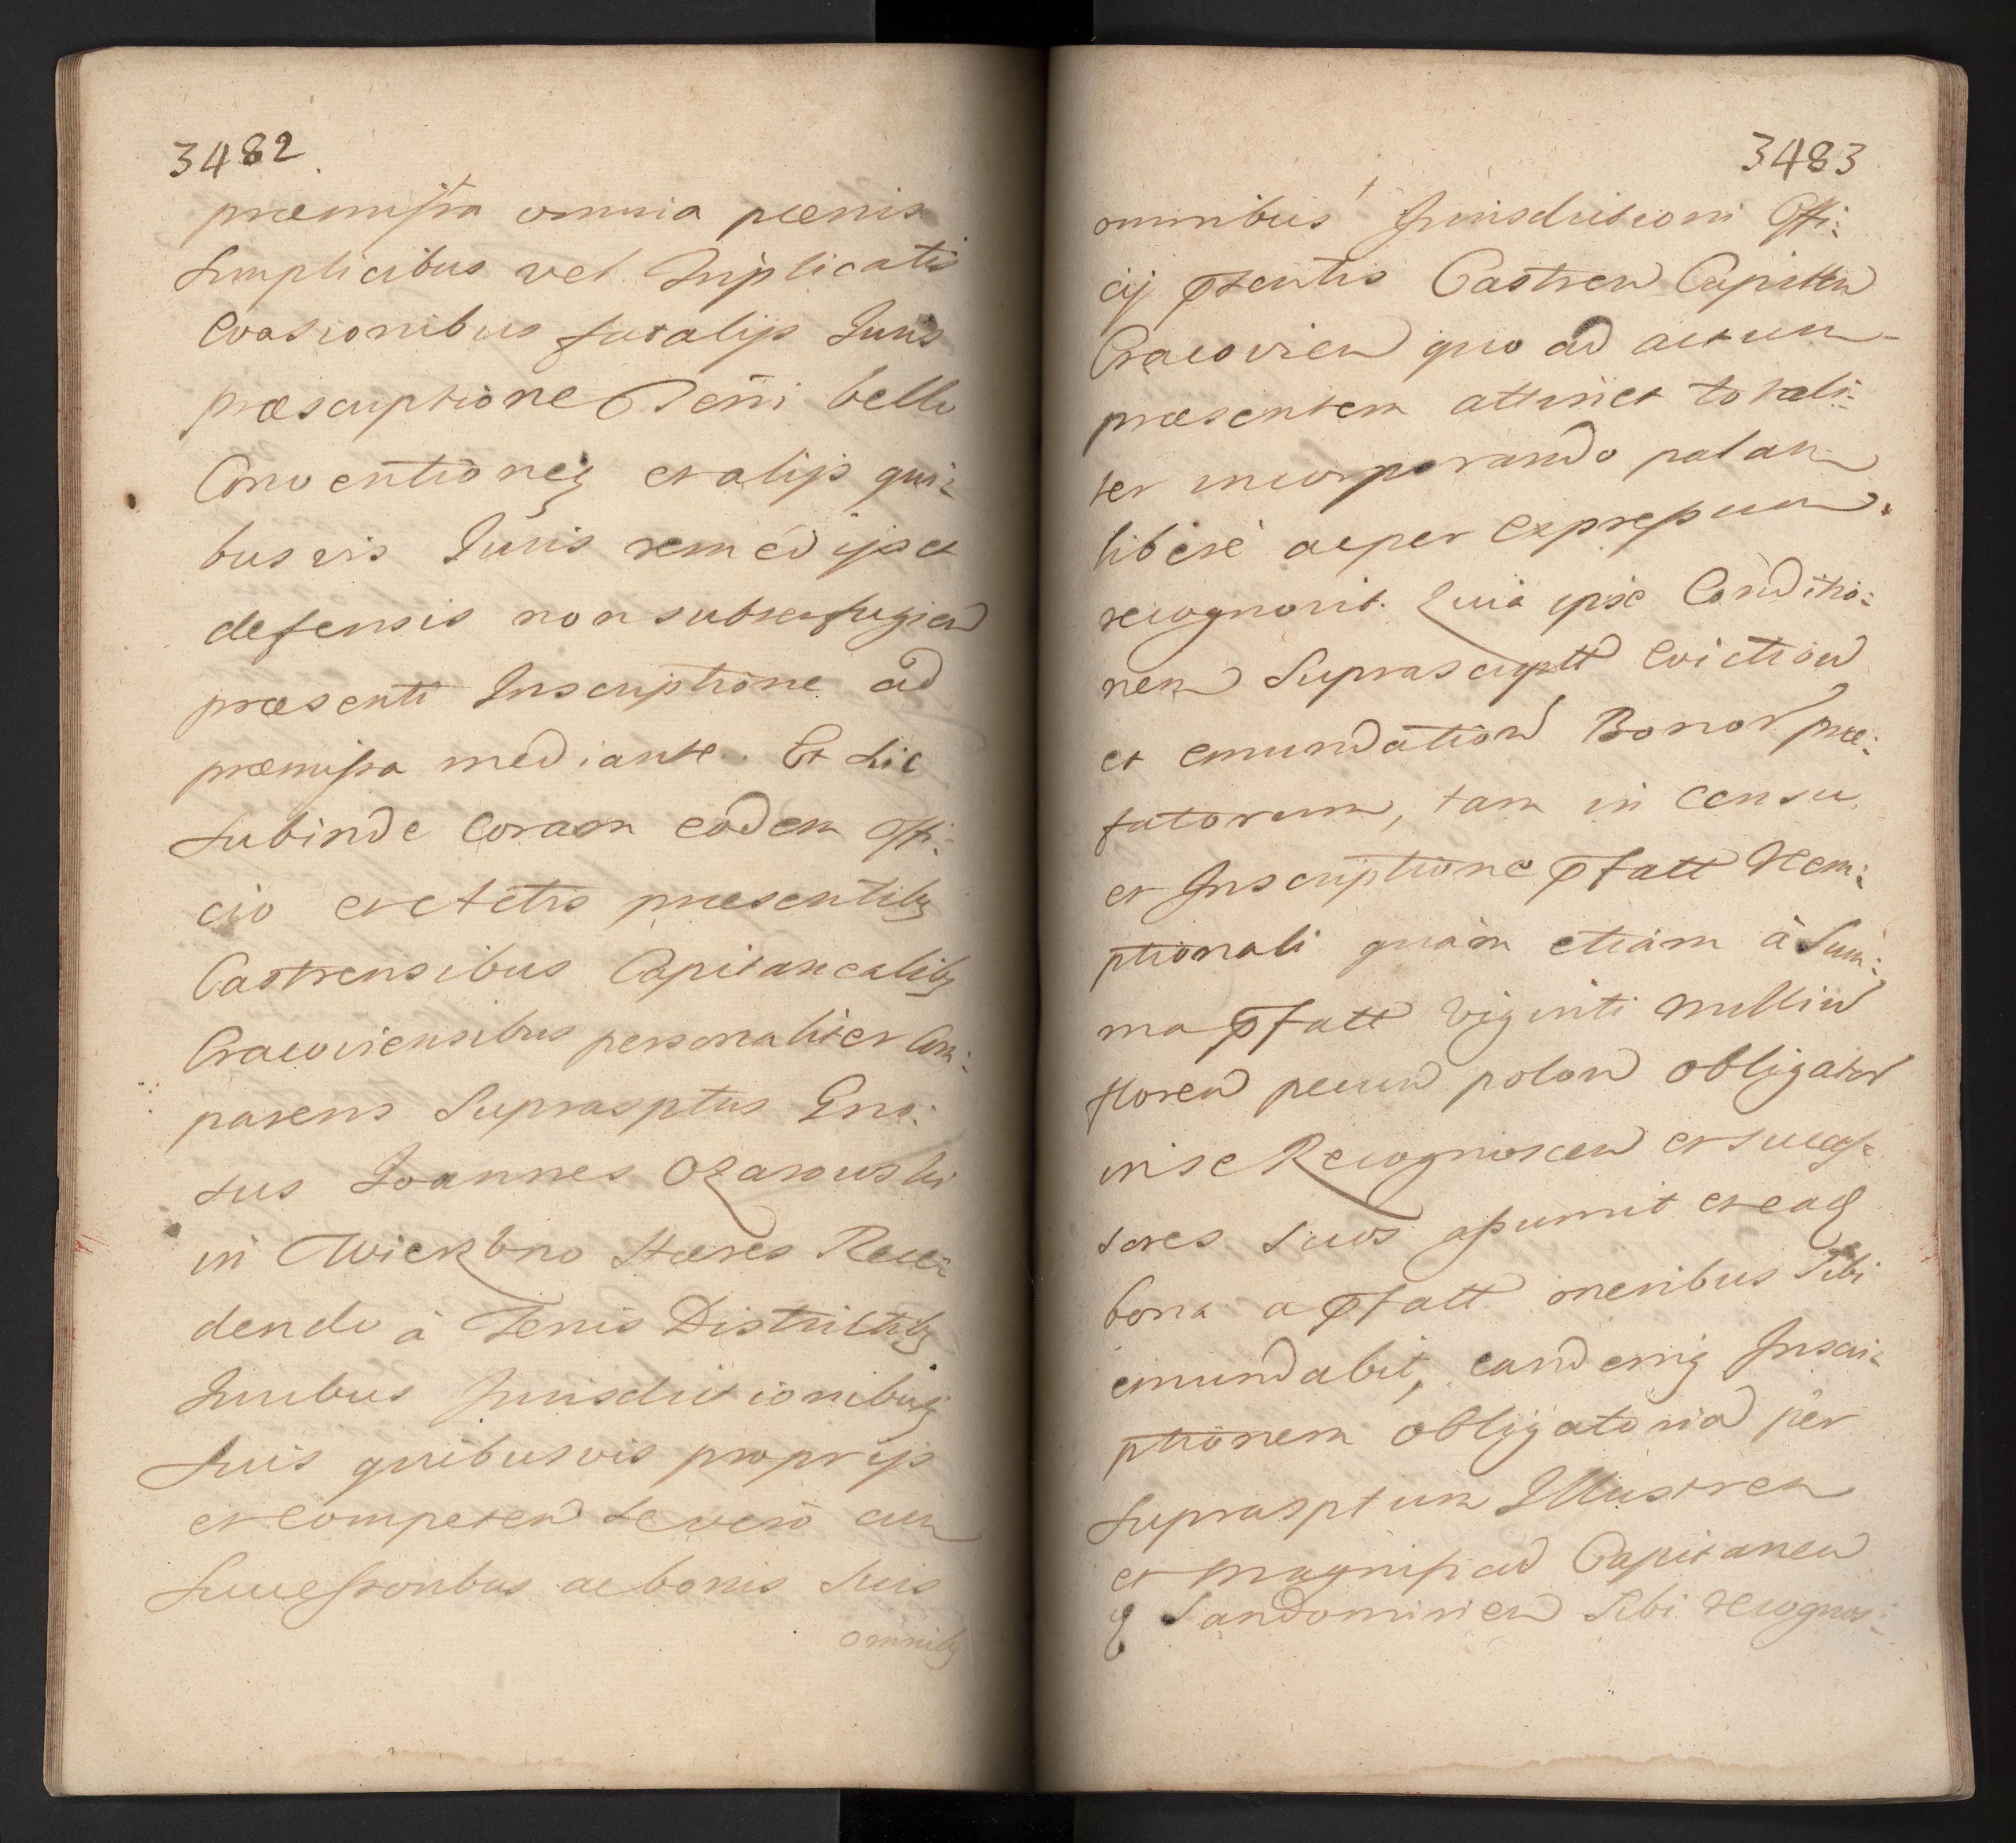 3482
præmissa omnia pœnis
Simplicibus vel Triplicatis
Evasionibus fatalijs Juris
præscriptione Terri belli
Conventioneq et alijs qui:
busvis Juris remedijs et
defensis non subterfugien
præsenti Inscriptione ad
præmissa mediante. Et hic
Subinde Coram eodem Offi:
cio et Actis præsentibq
Castrensibus Capitanealibq
Cracoviensibus personaliter Com:
parens Suprasptus Gno:
sus Joannes Ozarowski
in Wierzbno Hæres Rece:
dendo à Terris Districtibq
Juribus Jurisdictionibusq
Suis quibusvis proprijs
et competen se vero cum
Successoribus ac bonis Suis
omnibq
3483
omnibus Jurisdictioni Offi:
cij Ptentis Castren Capitta
Cracovien quo ad actum
præsentem attinet totali:
ter incorporando palam
liberè ac per expressum
recognovit. Quia ipse Conditio:
nem Suprascriptt Eviction
et emundation Bonor præ:
fatorum, tam in Censu
et Inscriptione Pfatt Rem:
ptionali quàm etiam à Sum:
ma Pfatt Viginti Millin
floren pecun polon obligator
in se Recognoscen et succes:
sores suos assumit et eadq
bona a Pfatt oneribus Sibi
emundabit, eandemq Inscri:
ptionem obligatoria per
Suprasptum Illustrem
et Magnificu Capitaneu
Sandomirien Sibi recognos: